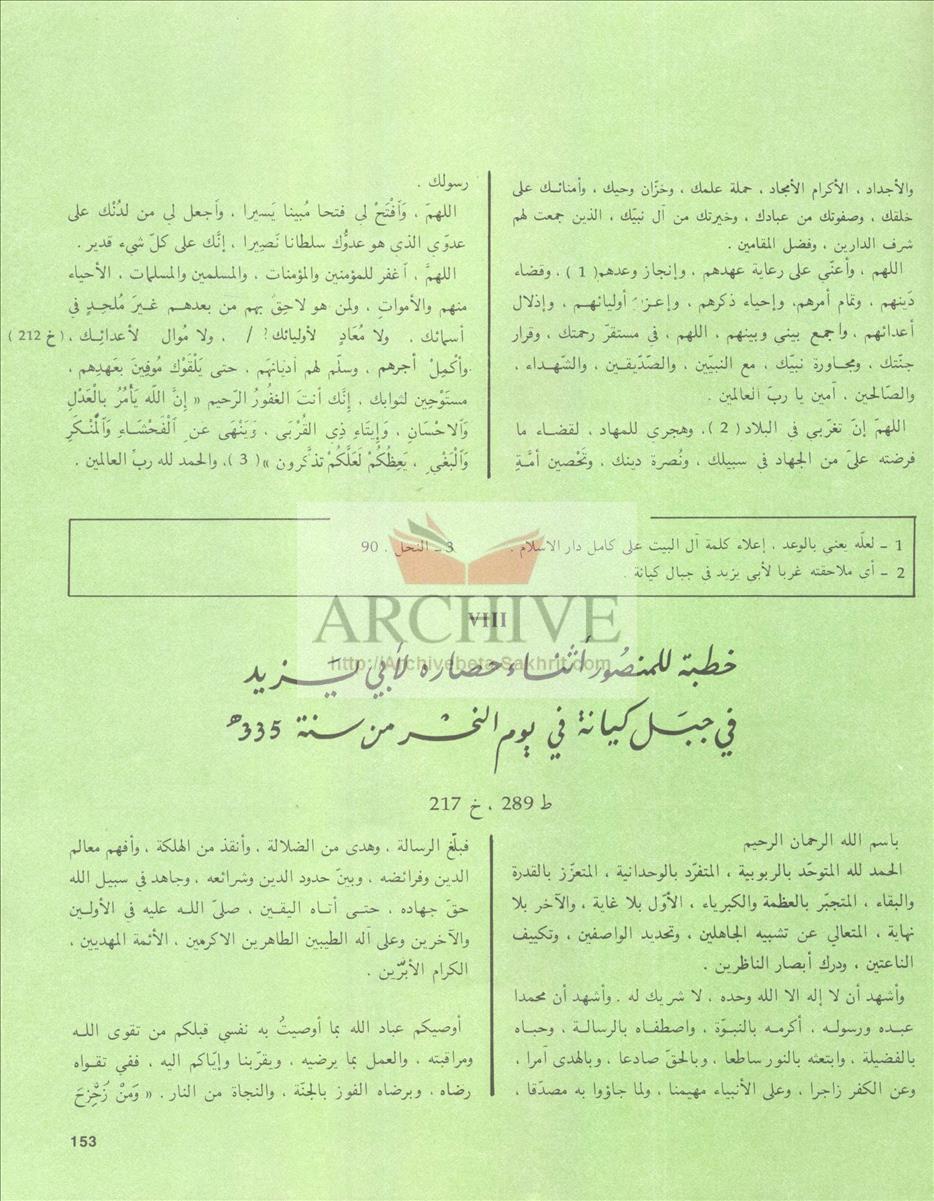 والأجداد ، الأكرام الأمجاد ، حملة علمك ، وخزّان وحيك ، وأمنائـك على
خلقك ، وصفوتك من عبادك ، وخيرتك من آل نبيّك ، الذين جمعت لهم
شرف الدارين ، وفضل المقامين .
اللهم ، وأعنّي على رعاية عهدهم ، وإنجاز وعدهم( 1 ) ، وقضاء
دَينهم ، وتمام أمرهم، وإحياء ذكرهم ، وإعزاز أوليائهـم ، وإذلال
أعدائهم ، واجمع بيني وبينهم ، اللهم ، في مستقرّ رحمتك ، وقرار
جنّتك ، ومجـاورة نبيّك ، مع النبيّين ، والصّدّيقـين ، والشّهـداء ،
والصّالحين . آمين يا ربّ العالمين .
اللهمّ إنّ تغرّبي في البلاد ( 2 ) ، وهجري للمهاد ، لقضـاء ما
فرضته عليّ من الجهاد في سبيلك ، ونُصرة دينك ، وتَحْصين أمّـةِ
رسولك .
اللهمّ ، وَٱفْتَحْ لي فتحا مُبينا يَسيرا ، وٱجعل لي من لدُنْك على
عدوّي الذي هو عدوُّك سلطانا نَصيرا ، إنَّك على كلّ شيء قدير .
اللهمَّ ، ٱغفر للمؤمنين والمؤمنات ، والمسلمين والمسلمات ، الأحياء
منهم والأمواتِ ، ولمن هو لاحِقٌ بهم من بعدهـم غـيرَ مُلحدٍ في
أسمائك ، ولا مُعَادٍ لأوليائك / ، ولا مُوال لأعدائِـك ، ( خ 212 )
وأكْمِلْ أجرهم ، وسلّم لهم أديانَهم ، حتى يَلْقَوْك مُوفِينَ بعَهدِهم ،
مستَوْجِبين لثوابك . إنَّك أنتَ الغفُورُ الرّحيم « إنَّ ٱللّه يَأمُرُ بِالْعَدْلِ
وَٱلاحْسَانِ ، وَإِيتَاءِ ذِي القُرْبَى ، وَيَنْهَى عَنِ ٱلْفَحْشَاءِ وَٱلْمُنْكَرِ
وَٱلْبَغْيِ ، يَعِظُكُمْ لَعَلَّكُمْ تَذَكَّرون »( 3 )، والحمد لله ربِّ العالمين .
1 ـ لعلّه يعني بالوعد ، إعلاء كلمة آل البيت على كامل دار الاسلام .
2 ـ أي ملاحقته غربا لأبي يزيد في جبال كيانة .
3 ـ النحل ، 90
ARCHIVE
http://Archivebeta.Sakhrit.com
VIII
خطبة للمنصُور أثناء حصاره لأبي يَزيد
في جبَل كيانة في يوم النحر من سنة 335ه
ط 289 ، خ 217
باسم الله الرحمان الرحيم
الحمد لله المتوحّد بالربوبية ، المتفرّد بالوحدانية ، المتعزّز بالقدرة
والبقاء ، المتجبّر بالعظمة والكبرياء ، الأوّل بلا غاية ، والآخر بلا
نهاية ، المتعالي عن تشبيه الجاهلين ، وتحديد الواصفين ، وتكييف
الناعتين ، ودرك أبصار الناظرين .
وأشهد أن لا إله الا الله وحده ، لا شريك له . وأشهد أن محمدا
عبـده ورسولـه ، أكرمـه بالنبـوّة ، واصطفـاه بالرسالـة ، وحبـاه
بالفضيلة ، وابتعثه بالنور ساطعا ، وبالحقّ صادعا ، وبالهدى آمرا ،
وعن الكفر زاجرا ، وعلى الأنبياء مهيمنا ، ولما جاؤوا به مصدّقا ،
فبلّغ الرسالة ، وهدى من الضلالة ، وأنقذ من الهلكة ، وأفهم معالم
الدين وفرائضه ، وبينّ حدود الدين وشرائعه ، وجاهد في سبيل الله
حقّ جهاده ، حتـى أتـاه اليقـين ، صلىّ اللـه عليه في الأولـين
والآخرين وعلى آله الطيبين الطاهرين الاكرمين ، الأئمة المهديين ،
الكرام الأبرّين .
أوصيكم عباد الله بما أوصيتُ به نفسي قبلكم من تقوى اللـه
ومراقبته ، والعمل بما يرضيه ، ويقرّبنا وإيّاكم اليه ، ففي تقـواه
رضاه ، وبرضاه الفوز بالجنّة ، والنجاة من النار . « وَمَنْ زُحْزِحَ
153